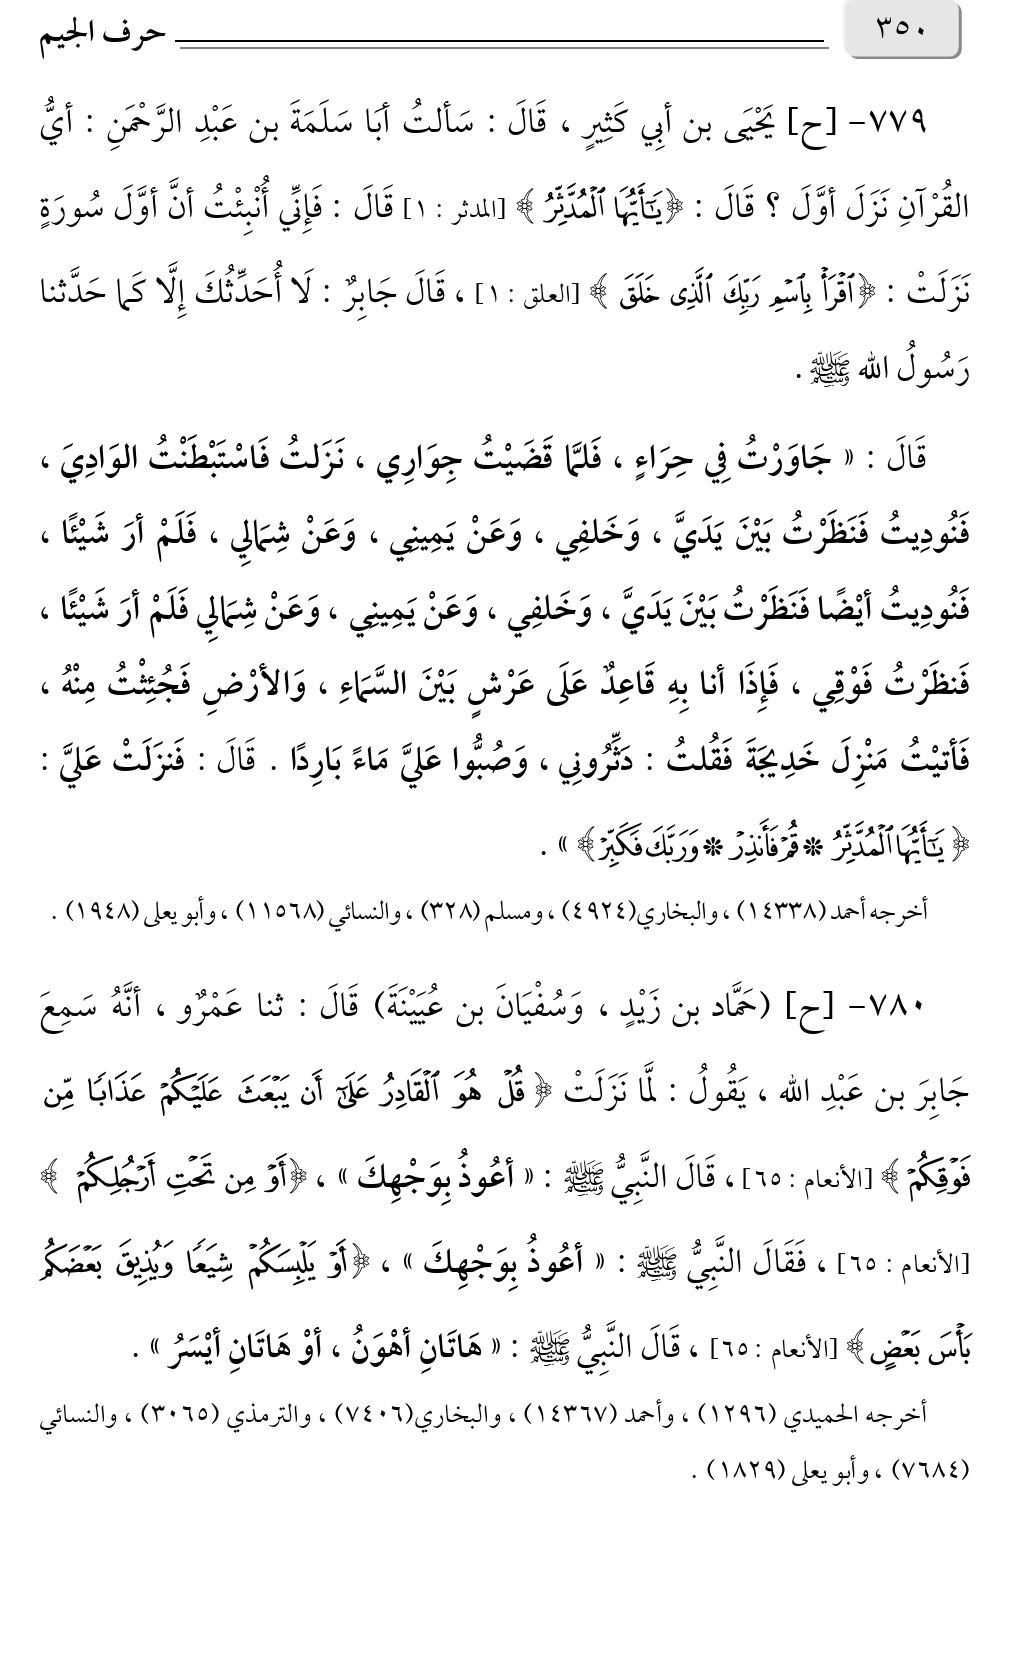 ٣٥٠
حرف الجيم
٧٧٩- [ح] يَحْيَى بن أَبِي كَثِيرٍ ، قَالَ : سَألتُ أبَا سَلَمَةَ بن عَبْدِ الرَّحْمَنِ : أيُّ
القُرْآنِ نَزَلَ أوَّلَ ؟ قَالَ : ﴿يَٰٓأَيُّهَا ٱلۡمُدَّثِّرُ ﴾ [المدثر : ١] قَالَ : فَإِنِّي أُنْبِئْتُ أنَّ أوَّلَ سُورَةٍ
نَزَلَتْ : ﴿ٱقۡرَأۡ بِٱسۡمِ رَبِّكَ ٱلَّذِى خَلَقَ ﴾ [العلق : ١] ، قَالَ جَابِرٌ : لَا أُحَدِّثُكَ إِلَّا كَما حَدَّثنا
رَسُولُ الله ﷺ .
قَالَ : « جَاوَرْتُ فِي حِرَاءٍ ، فَلمَّا قَضَيْتُ جِوَارِي ، نَزَلتُ فَاسْتَبْطَنْتُ الوَادِيَ ،
فَنُودِيتُ فَنَظَرْتُ بَيْنَ يَدَيَّ ، وَخَلفِي ، وَعَنْ يَمِينِي ، وَعَنْ شِمَالِي ، فَلَمْ أرَ شَيْئًا ،
فَنُودِيتُ أيْضًا فَنَظَرْتُ بَيْنَ يَدَيَّ ، وَخَلفِي ، وَعَنْ يَمِينِي ، وَعَنْ شِمَالِي فَلَمْ أرَ شَيْئًا ،
فَنظَرْتُ فَوْقِي ، فَإِذَا أنا بِهِ قَاعِدٌ عَلَى عَرْشٍ بَيْنَ السَّمَاءِ ، وَالأرْضِ فَجُئِثْتُ مِنْهُ ،
فَأتيْتُ مَنْزِلَ خَدِيجَةَ فَقُلتُ : دَثِّرُونِي ، وَصُبُّوا عَليَّ مَاءً بَارِدًا . قَالَ : فَنزَلَتْ عَليَّ :
﴿ يَٰٓأَيُّهَا ٱلۡمُدَّثِّرُ * قُمۡ فَأَنذِرۡ * وَرَبَّكَ فَكَبِّرۡ﴾ » .
أخرجه أحمد (١٤٣٣٨) ، والبخاري(٤٩٢٤) ، ومسلم (٣٢٨) ، والنسائي (١١٥٦٨) ، وأبو يعلى (١٩٤٨) .
٧٨٠- [ح] (حَمَّاد بن زَيْدٍ ، وَسُفْيَانَ بن عُيَيْنَةَ) قَالَ : ثنا عَمْرٌو ، أنَّهُ سَمِعَ
جَابِرَ بن عَبْدِ الله ، يَقُولُ : لمَّا نَزَلَتْ ﴿ قُلۡ هُوَ ٱلۡقَادِرُ عَلَىٰٓ أَن يَبۡعَثَ عَلَيۡكُمۡ عَذَابًا مِّن
فَوۡقِكُمۡ ﴾ [الأنعام : ٦٥] ، قَالَ النَّبِيُّ ﷺ : « أعُوذُ بِوَجْهِكَ » ، ﴿أَوۡ مِن تَحۡتِ أَرۡجُلِكُمۡ ﴾
[الأنعام : ٦٥] ، فَقَالَ النَّبِيُّ ﷺ : « أعُوذُ بِوَجْهِكَ » ، ﴿أَوۡ يَلۡبِسَكُمۡ شِيَعًا وَيُذِيقَ بَعۡضَكُم
بَأۡسَ بَعۡضٍ﴾ [الأنعام : ٦٥] ، قَالَ النَّبِيُّ ﷺ : « هَاتَانِ أهْوَنُ ، أوْ هَاتَانِ أيْسَرُ » .
أخرجه الحميدي (١٢٩٦) ، وأحمد (١٤٣٦٧) ، والبخاري(٧٤٠٦) ، والترمذي (٣٠٦٥) ، والنسائي
(٧٦٨٤) ، وأبو يعلى (١٨٢٩) .